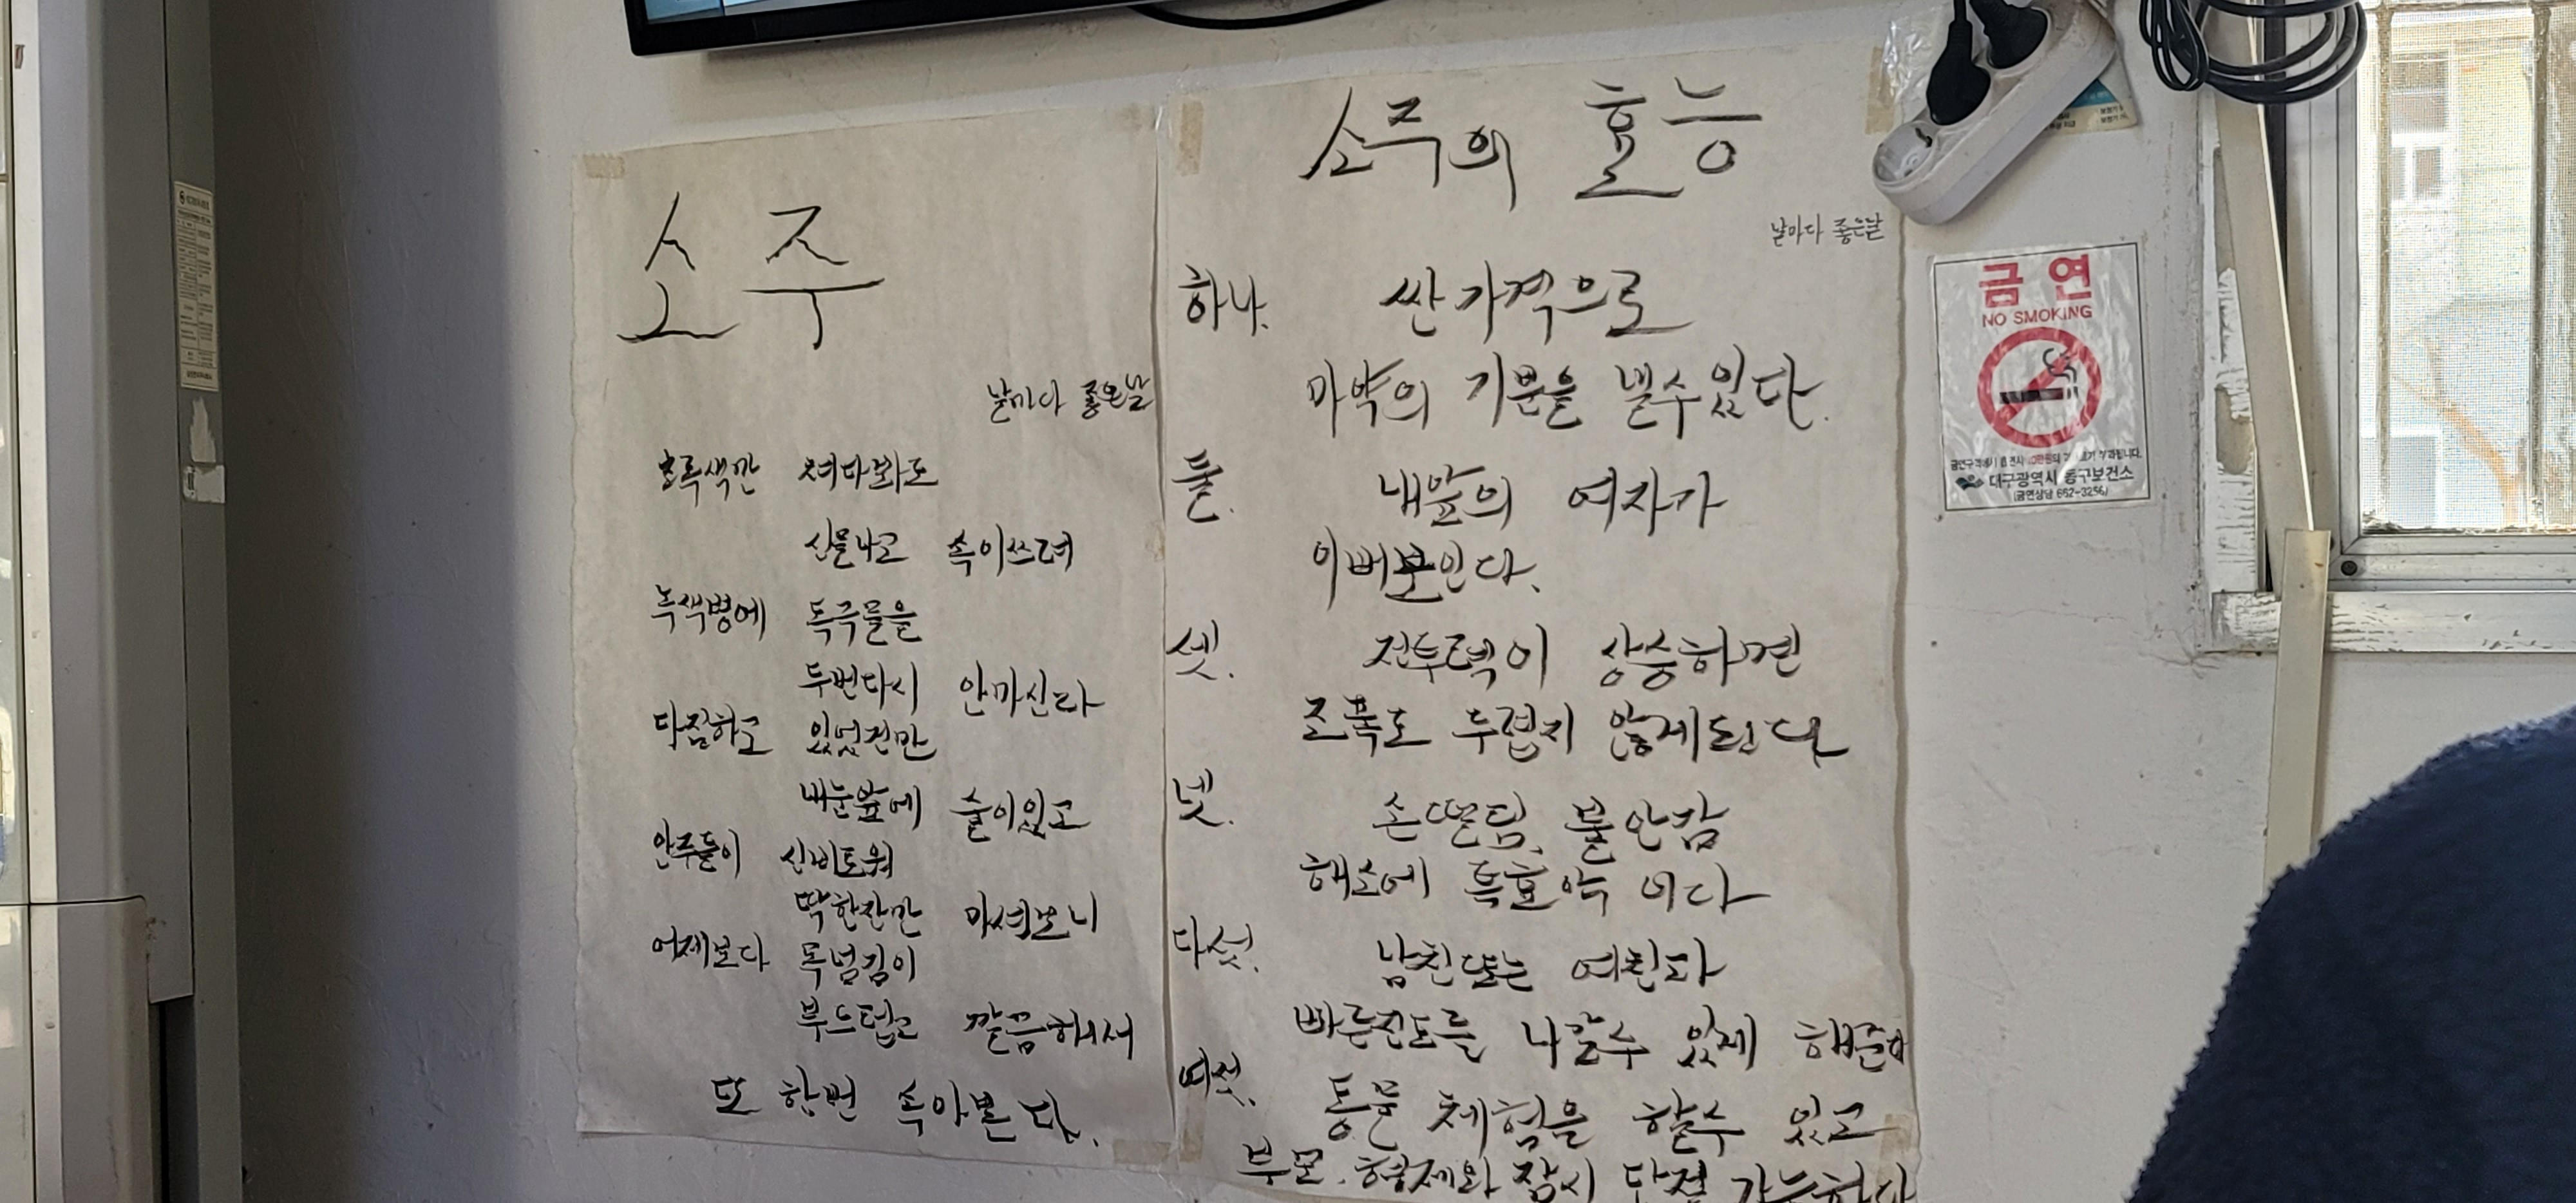 소주
날마다 좋은날
초록색깐 쳐다봐도
신물나고 속이쓰려
녹색병에 독극물을
두번다시 안마신다
다짐하고 있었건만
내눈앞에 술이있고
안주들이 신비로워
딱한잔만 마셔보니
어제보다 목넘김이
부드럽고 깔끔하여서
또 한번 속아본다.
소주의 효능
날마다 좋은날
하나. 싼가격으로
마약의 기분을 낼수있다.
둘. 내앞의 여자가
이뻐보인다.
셋. 전투력이 상승하면
조폭도 두렵지 않게된다
넷. 손떨림, 불안감
해소에 특효약 이다
다섯. 남친또는 여친과
빠른진도를 나갈수 있게 해준다
여섯. 동물 체험을 할수 있고
부모. 형제와 잠시 단절 가능하다
금연
NO SMOKING
대구광역시 동구보건소
(금연상담 662-3256)